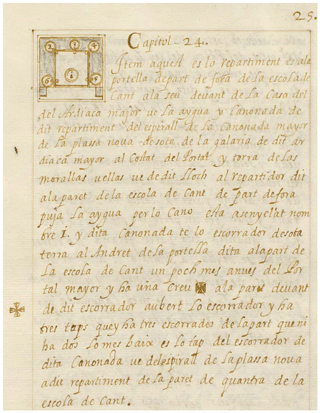 25.
Capitol - 24.
Item aquest es lo repartiment es ala
portella de part de fora de la escola de
Cant ala seu devant de la Casa del
del Ardiaca major ve la aygua y Canonada de
dit repartiment del espirall de la Canonada mayor
de la plassa nova de sota de la galaria de dit ar
diaca mayor al Costat del Portal y torra de las
morallas vellas ve de dit lloch al repartidor dit
ala paret de la escola de Cant de part de fora
puja la aygua per lo Cano esta asenyellat nom
bre 1. y dita Canonada te lo escorrador desota
terra al Andret de la portella dita ala part de
la escola de Cant un poch mes anves del Por
tal mayor y ha una Creu ala paret devant
de dit escorrador aubert lo escorrador y ha
tres taps que y ha tres escorrados de la part que ni
ha dos lo mes baix es lo tap del escorrador de
dita Canonada ve del espirall de la plassa nova
a dit repartiment de la paret de quantra de la
escola de Cant.